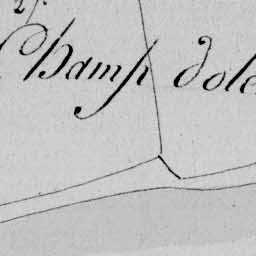 Champ dole